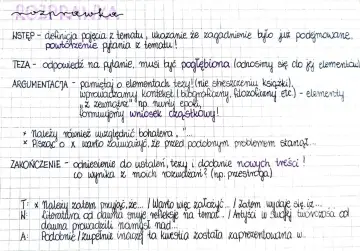 rozprawka
WSTĘP - definicja pojęcia z tematu, ukazanie że zagadnienie było już podejmowane,
powtórzenie pytania z tematu!
TEZA - odpowiedź na pytanie, musi być pogłębiona (odnosimy się do jej elementów)
ARGUMENTACJA - pamiętaj o elementach tezy! (nie streszczeniu książki),
wprowadzamy kontekst (biograficzny, filozoficzny etc) - elementy
"z zewnątrz" np. nurty epoki,
formułujemy wniosek cząstkowy!
* należy również uwzględnić bohatera, "...
* Pisząc o x warto zauważyć, że przed podobnym problemem stanął...
ZAKOŃCZENIE - odniesienie do ustaleń, tezy i dodanie nowych treści!
co wynika z moich rozważań? (np. przestroga)
T: * Należy zatem przyjąć, że... / Warto więc założyć... / Zatem wydaje się, iż...
N: Literatura od dawna snuje refleksje na temat... / Artyści w swojej twórczości od
dawna prowadzili namysł nad...
A: Podobnie / Zupełnie inaczej ta kwestia została zaprezentowana w...